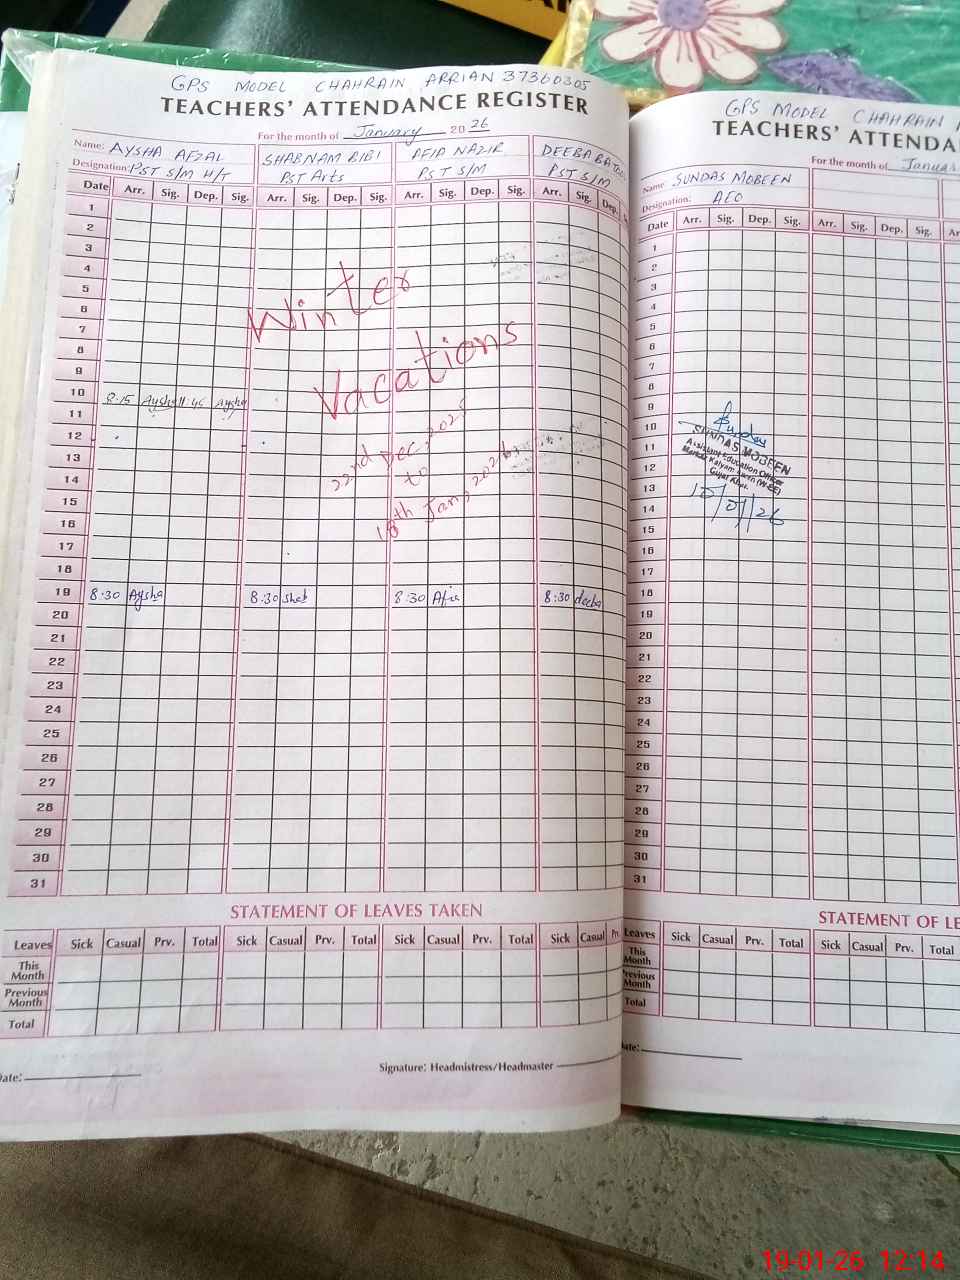 GPS MODEL CHAHRAIN ARRIAN 37360305
TEACHERS' ATTENDANCE REGISTER
For the month of January 2026
Name: AYSHA AFZAL SHABNAM BIBI AFIA NAZIR DEEBA
Designation: PST S/M H/T PST Arts PST S/M PST S/M
Date Arr. Sig. Dep. Sig. Arr. Sig. Dep. Sig. Arr. Sig. Dep. Sig. Arr. Sig. Dep.
1
2
3
4
5
6
7
8
9
10 8.15 Aysha 11:45 Aysha
11
12
13
14
15
16
17
18
19 8:30 Aysha 8:30 Shab 8:30 Afia 8:30 deeba
20
21
22
23
24
25
26
27
28
29
30
31
Winter
Vacations
22nd Dec, 2025
to
18th Jan, 2026
STATEMENT OF LEAVES TAKEN
Leaves Sick Casual Prv. Total Sick Casual Prv. Total Sick Casual Prv. Total Sick Casual
This Month
Previous Month
Total
Date:
Signature: Headmistress/Headmaster
GPS MODEL CHAHRAIN
TEACHERS' ATTENDA
For the month of January
Name SUNDAS MOBEEN
Designation: AEO
Date Arr. Sig. Dep. Sig. Arr. Sig. Dep. Sig. Ar
1
2
3
4
5
6
7
8
9
10
11
12
13
14
15
16
17
18
19
20
21
22
23
24
25
26
27
28
29
30
31
SUNDAS MOBEEN
Assistant Education Officer
Gujar Khan
10/01/26
STATEMENT OF LE
Leaves Sick Casual Prv. Total Sick Casual Prv. Total
This Month
Previous Month
Total
Date:
19-01-26 12:14